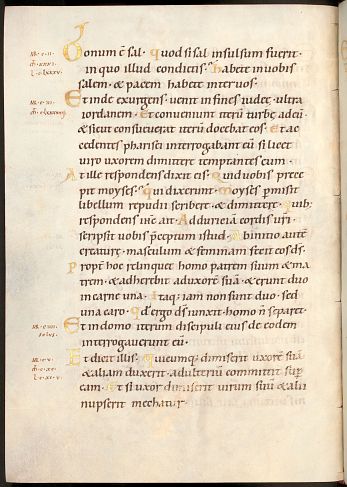 Bonum ē sal. Quod si sal insulsum fuerit.
in quo illud condietis. Habete in vobis
salem. & pacem habete inter vos.
Et inde exurgens. venit in fines iudeę ultra
iordanem. Et conveniunt iterū turbę ad eū.
& sicut consueverat iterū docebat eos. Et ac
cedentes pharisei interrogabant eū si licet
viro uxorem dimittere temptantes eum.
At ille respondens dixit eis. Quid vobis prece
pit moyses. Qui dixerunt. Moyses p̄misit
libellum repudii scribere. & dimittere. Quib;
respondens ihc̄ ait. Ad duriciā cordis vr̄i.
scripsit vobis p̄ceptum istud. Ab initio autē
creaturę. masculum & feminam fecit eos ds̄.
Propt̄ hoc relinquet homo patrem suum & ma
trem. & adherebit ad uxorē suā. & erunt duo
in carne una. Itaq; iam non sunt duo. sed
una caro. Qd̄ ergo ds̄ iunxit. homo n̄ separet.
Et in domo iterum discipuli eius de eodem
interrogaverunt eū.
Et dicit illis. Quicumq; dimiserit uxorē suā
& aliam duxerit. adulteriū committit sup̄
eam. Et si uxor dimiserit virum suū & alii
nupserit mechatur.